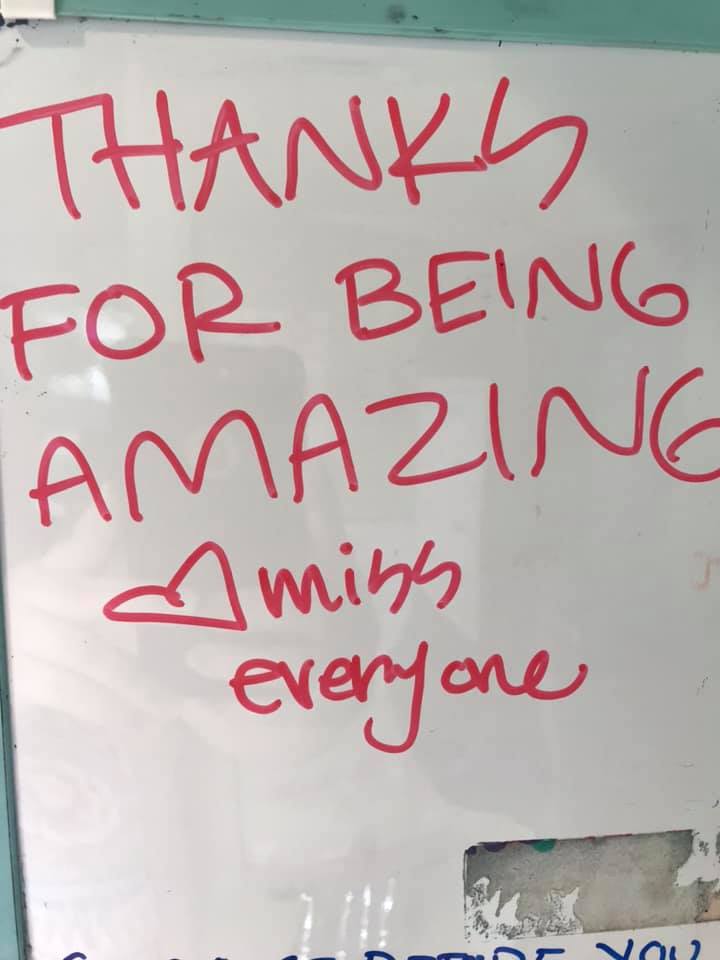 THANKS
FOR BEING
AMAZING
miss
everyone
YOU